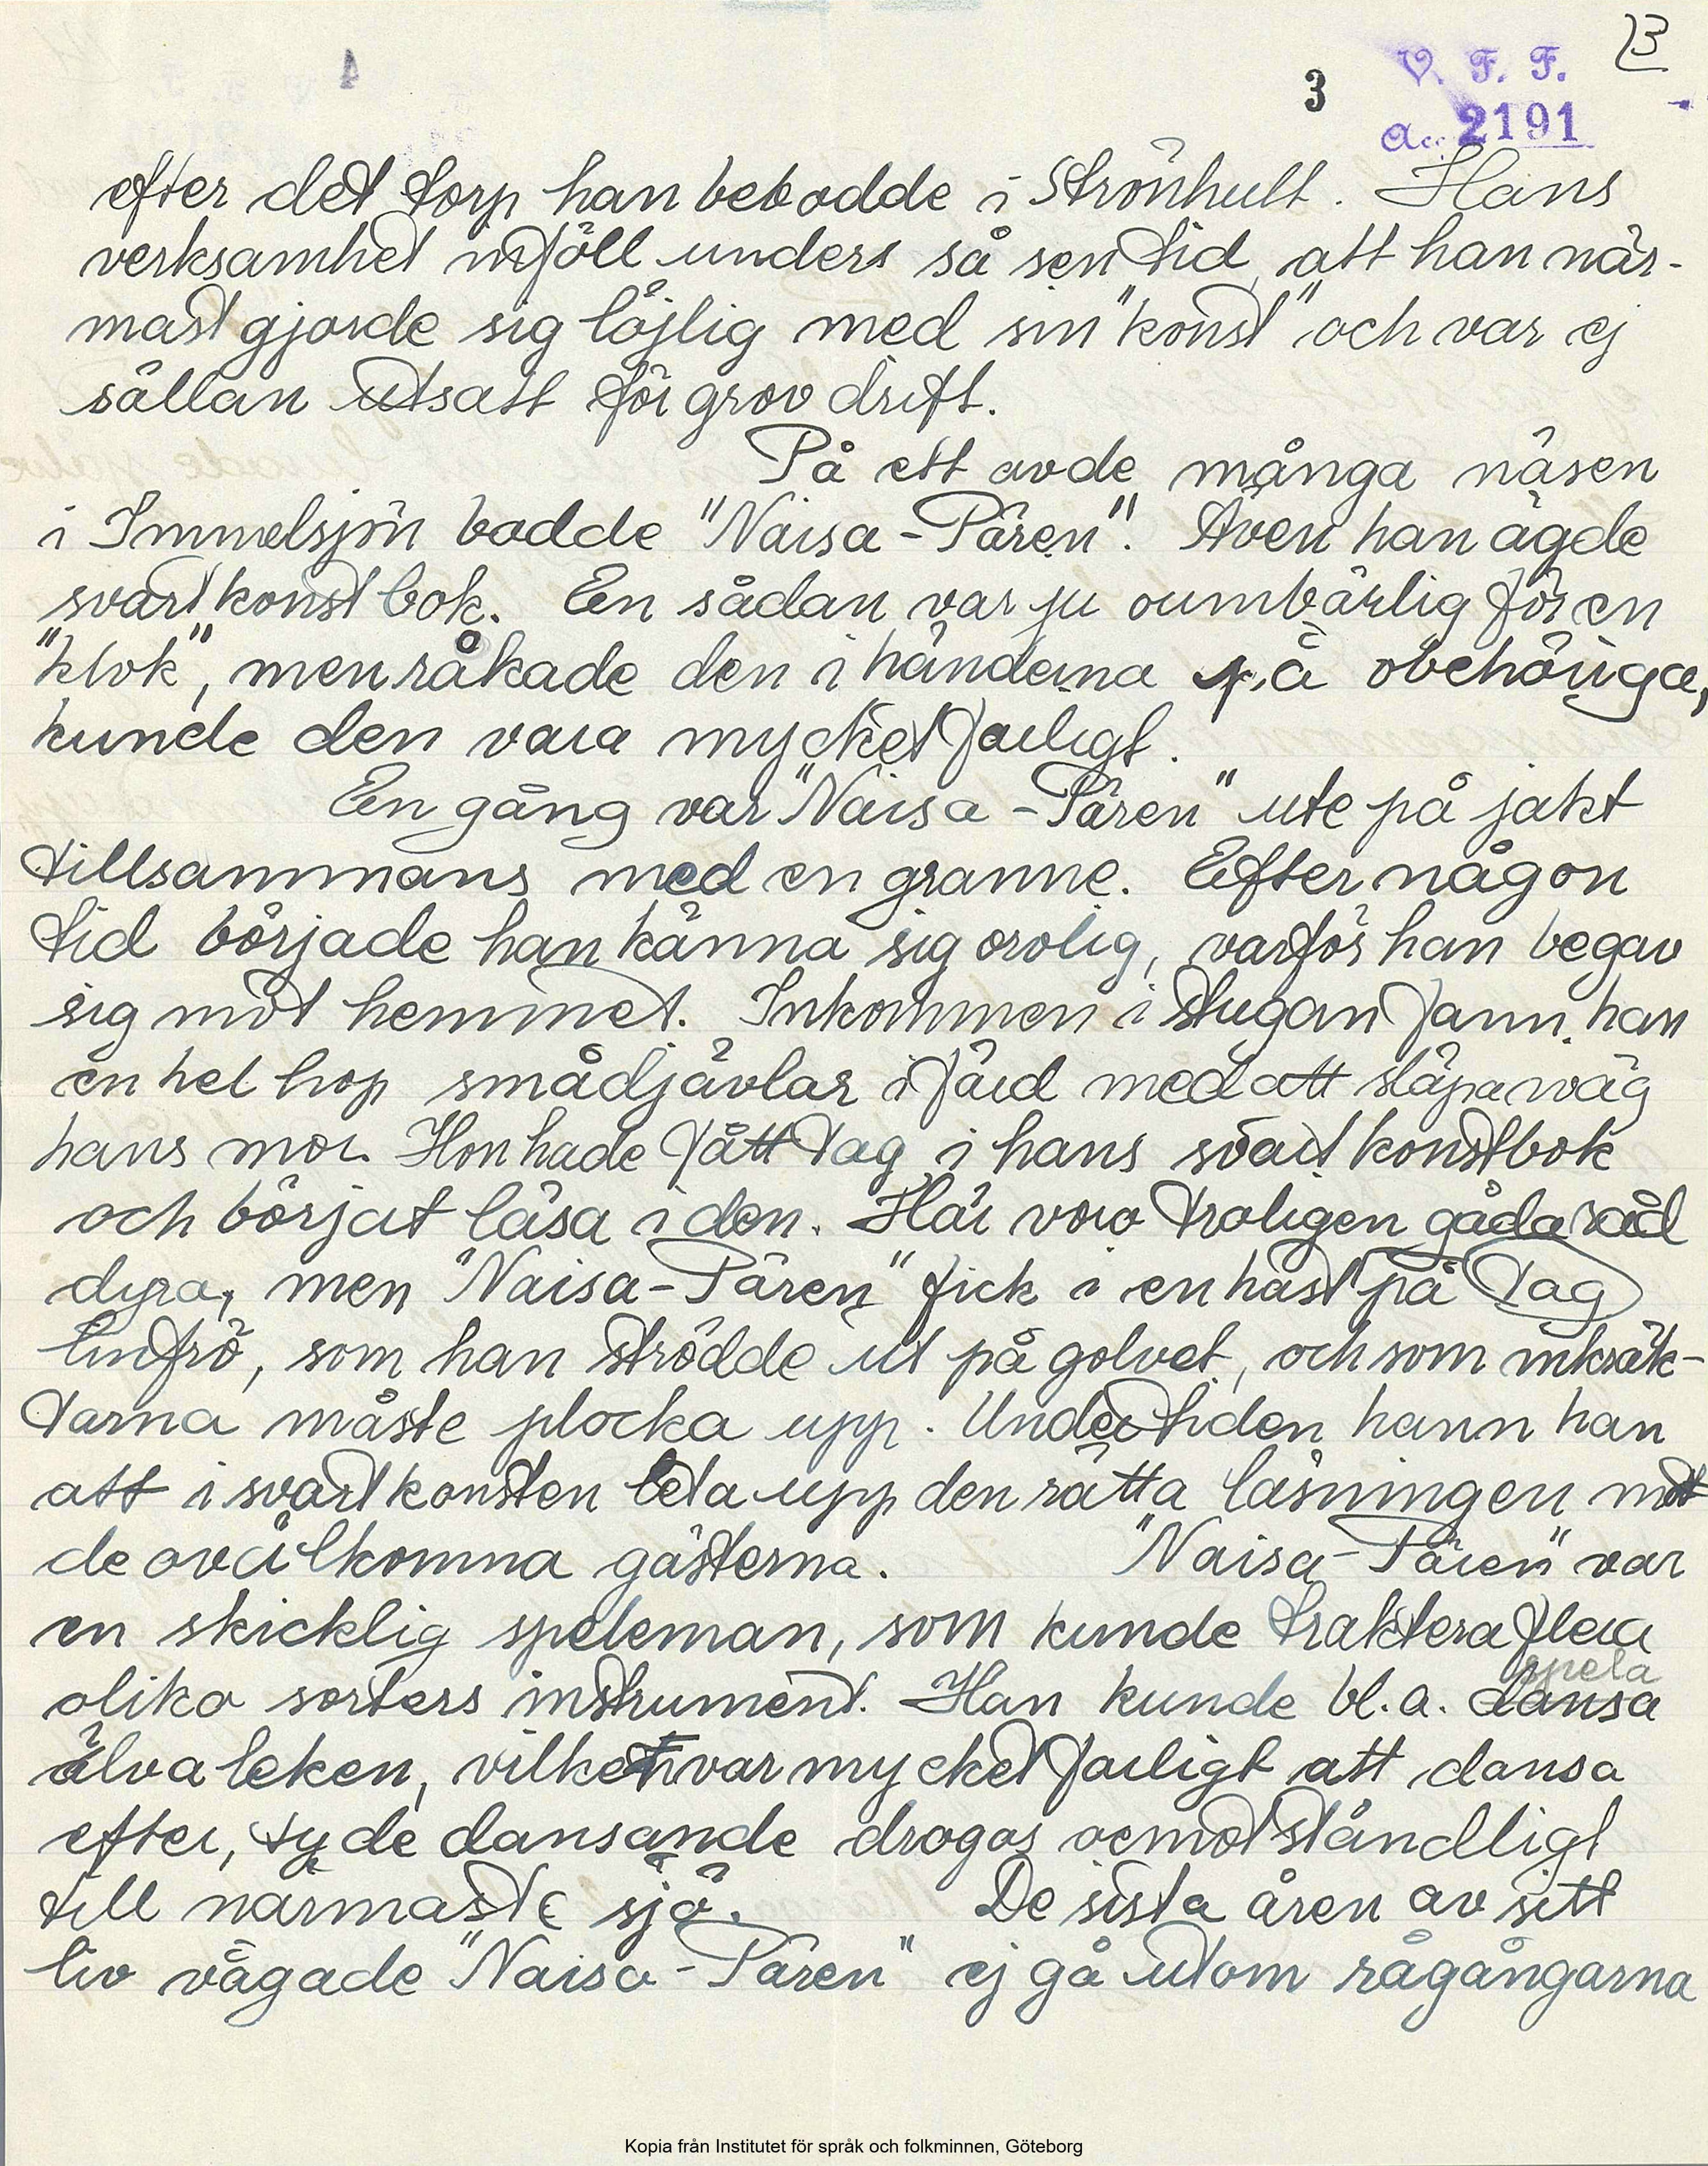 3
V. F. F.
Acc. 2191
3
efter det torp han bebodde i Strönhult. Hans
verksamhet inföll under så sen tid, att han när-
mast gjorde sig löjlig med sin "konst" och var ej
sällan utsatt för grov drift.
På ett av de många näsen
i Immelsjön bodde "Naisa-Pären". Även han ägde
svartkonstbok. En sådan var ju oumbärlig för en
"klok", men råkade den i händerna på obehöriga,
kunde den vara mycket farligt.
En gång var "Naisa-Pären" ute på jakt
tillsammans med en granne. Efter någon
tid började han känna sig orolig, varför han begav
sig mot hemmet. Inkommen i stugan fann han
en hel hop smådjävlar i färd med att släpa iväg
hans mor. Hon hade fått tag i hans svartkonstbok
och börjat läsa i den. Här voro troligen goda råd
dyra, men "Naisa-Pären" fick i en hast på tag
linfrö, som han strödde ut på golvet, och som inkräk-
tarna måste plocka upp. Under tiden hann han
att i svartkonsten leta upp den rätta läsningen mot
de ovälkomna gästerna. "Naisa-Pären" var
en skicklig speleman, som kunde traktera flera
spela
olika sorters instrument. Han kunde bl.a. dansa
älvaleken, vilket var mycket farligt att dansa
efter, ty de dansande drogos oemotståndligt
till närmaste sjö. De sista åren av sitt
liv vågade "Naisa-Pären" ej gå utom rågångarna
Kopia från Institutet för språk och folkminnen, Göteborg